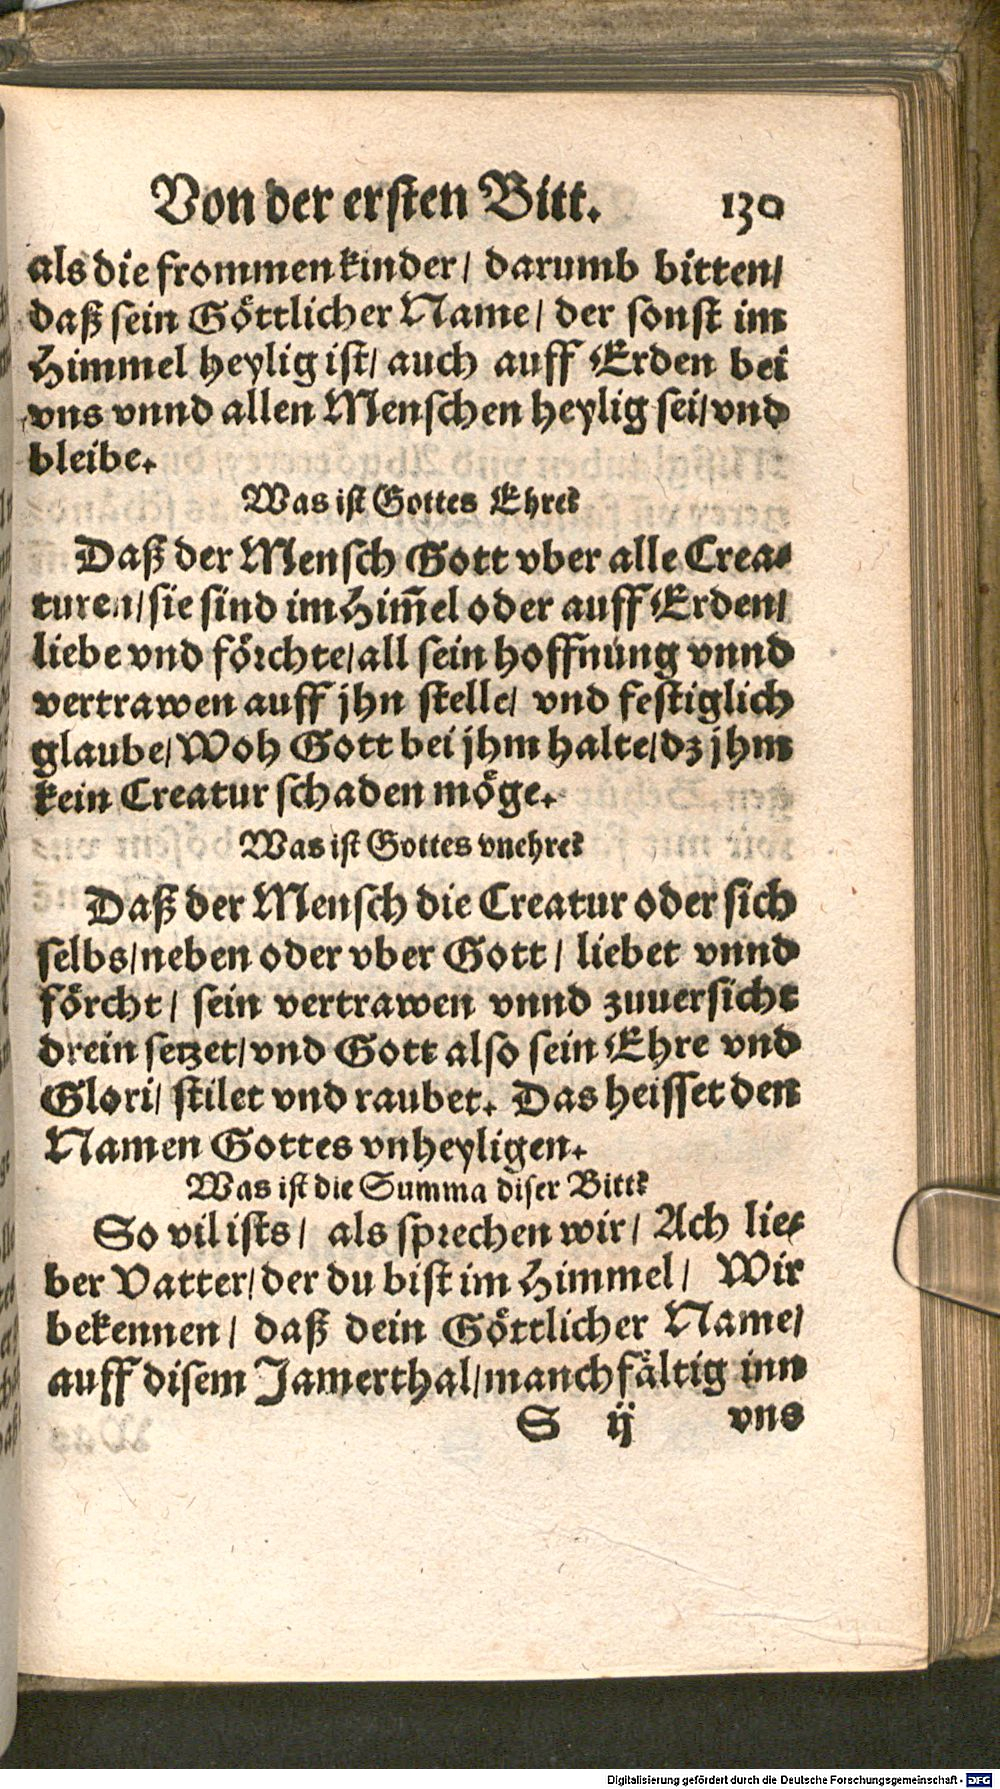 Von der ersten Bitt. 130
als die frommen kinder/ darumb bitten/
daß sein Göttlicher Name/ der sonst im
Himmel heylig ist/ auch auff Erden bei
vns vnnd allen Menschen heylig sei/ vnd
bleibe.
Was ist Gottes Ehre?
Daß der Mensch Gott vber alle Crea⸗
turen/ sie sind im Him̄el oder auff Erden/
liebe vnd förchte/ all sein hoffnung vnnd
vertrawen auff jhn stelle/ vnd festiglich
glaube/ Woh Gott bei jhm halte/ dz jhm
kein Creatur schaden möge.
Was ist Gottes vnehre?
Daß der Mensch die Creatur oder sich
selbs/ neben oder vber Gott/ liebet vnnd
förcht/ sein vertrawen vnnd zuuersicht
drein setzet/ vnd Gott also sein Ehre vnd
Glori/ stilet vnd raubet. Das heisset den
Namen Gottes vnheyligen.
Was ist die Summa diser Bitt?
So vil ists/ als sprechen wir/ Ach lie⸗
ber Vatter/ der du bist im Himmel/ Wir
bekennen/ daß dein Göttlicher Name/
auff disem Jamerthal/ manchfältig inn
S ij vns
Digitalisierung gefördert durch die Deutsche Forschungsgemeinschaft - DFG